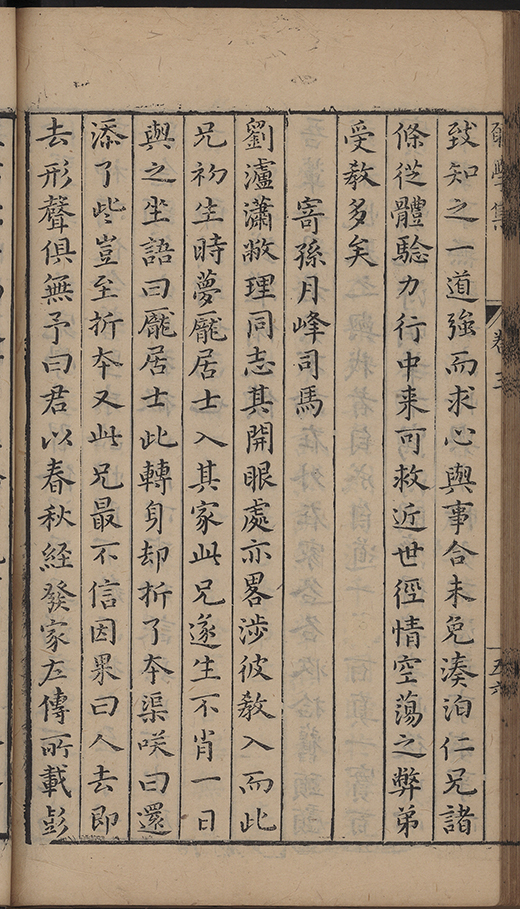 學集 卷三 五六
致知之一道強而求心與事合未免湊泊仁兄諸
條從體驗力行中来可救近世徑情空蕩之弊弟
受教多矣
寄孫月峰司馬
劉瀘瀟敝理同志其開眼處亦畧涉彼教入而此
兄初生時夢龐居士入其家此兄遂生不肖一日
與之坐語曰龐居士此轉身却折了夲渠咲曰還
添了些豈至折夲又此兄最不信因果曰人去即
去形聲俱無予曰君以春秋経發家左傳所載彭